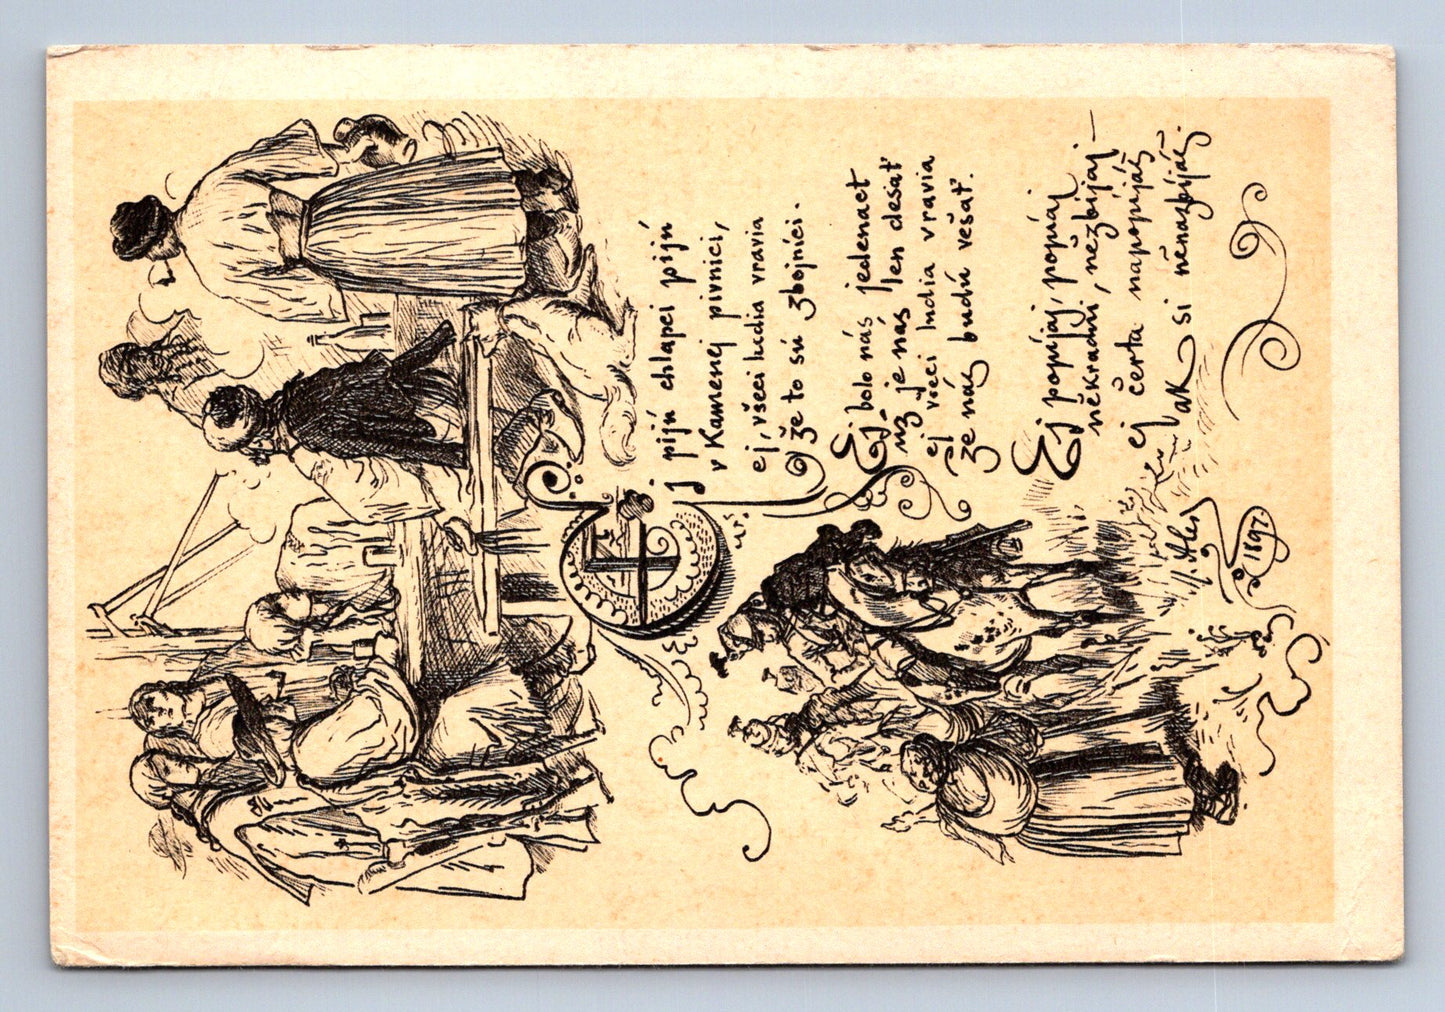 Ej pijú chlapci pijú
v Kamenej pivnici,
ej, všeci ludia vravia
že to sú zbojníci.
Ej bolo nás jedenáct
už je nás len desať
ej všeci ludia vravia
že nás budú vešať.
Ej popíjaj, popíjaj
někradni, nězbíjaj —
ej čerta napopíjáš
ak si něnazbíjáš.
M. Aleš
1897.